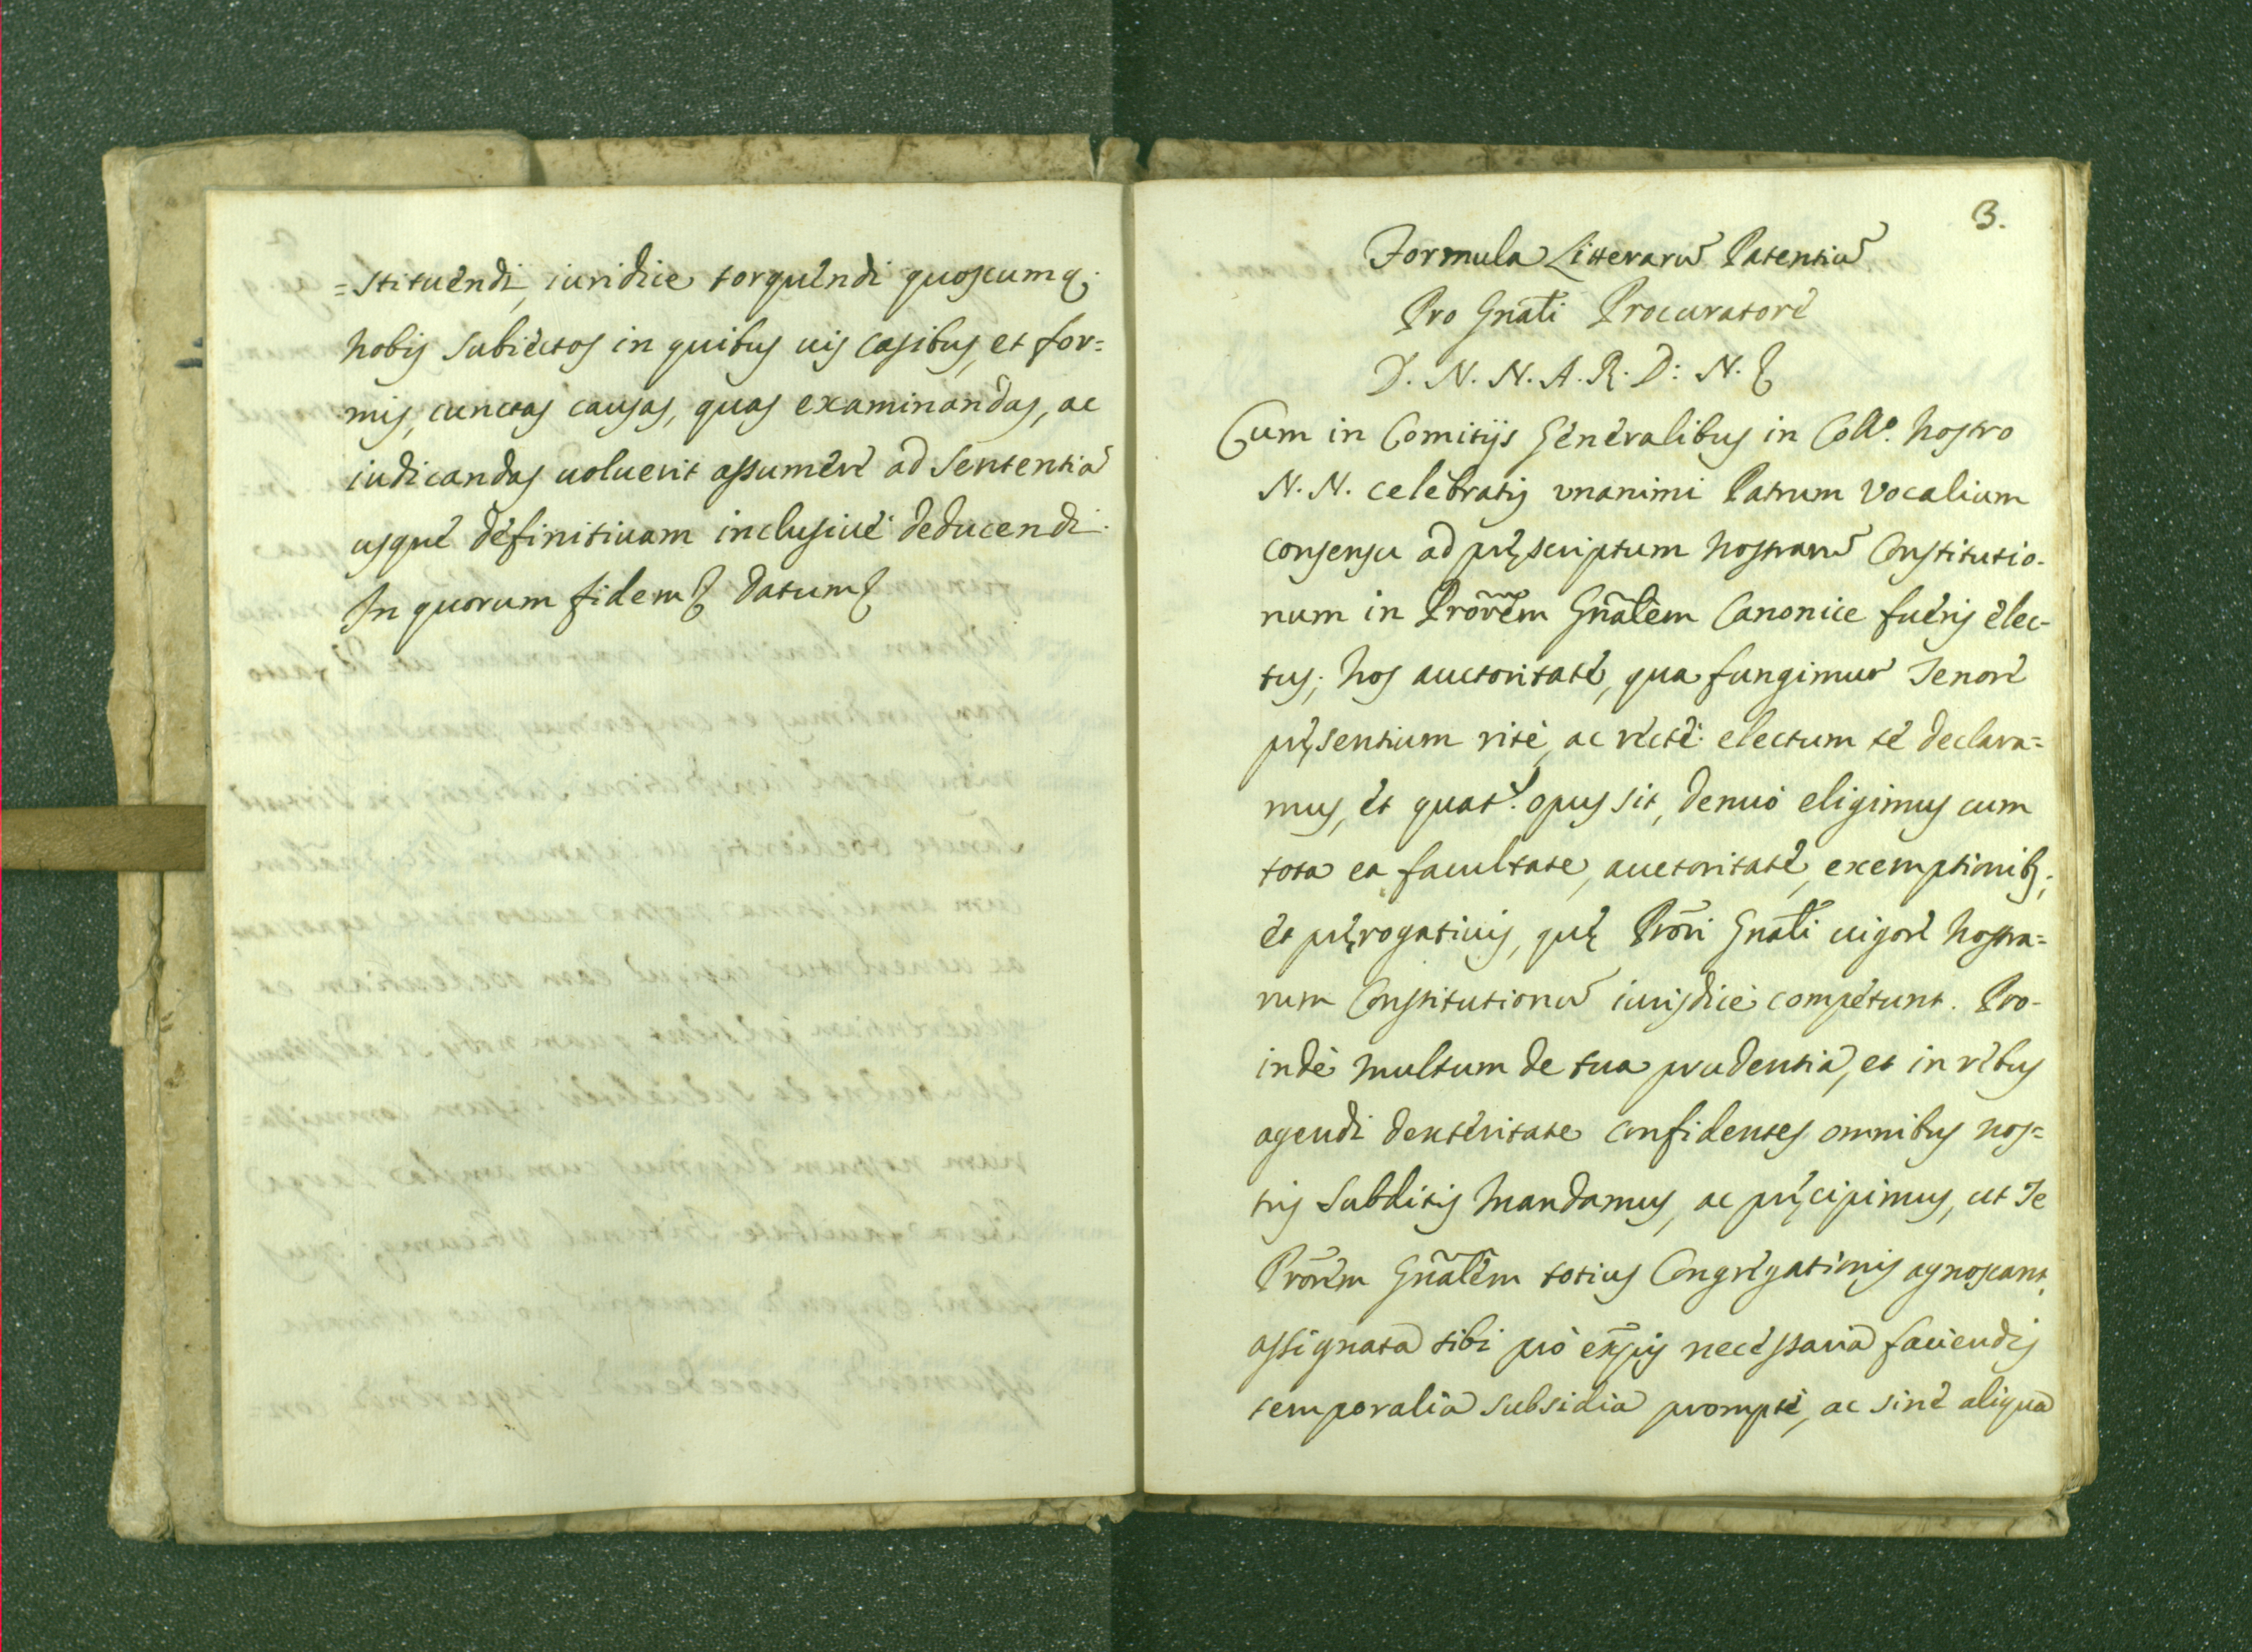 =stituendi, iuridice torquendi quoscumq;
nobis subiectos in quibus uis casibus, et for=
mis, cunctas causas, quas examinandas, ac
iudicandas uoluerit assumere ad sententiã
usque definitiuam inclusiuè deducendi.
In quorum fidem & datum &
3.
Formula Litterarũ Patentiũ
Pro Gnãli Procuratore
D. N. N. A. R. D: N. &
Cum in Comitijs Generalibus in Collº. nostro
N. N. celebratis vnanimi Patrum Vocalium
consensu ad pręscriptum nostrarũ Constitutio-
num in Prõrem Gñalem Canonice fueris elec-
tus; nos auctoritate, qua fungimur Tenore
pręsentium ritè, ac rectè electum te declara=
mus, et quat.s opus sit, denuò eligimus cum
tota ea facultate, auctoritate, exemptionib;,
et pręrogatiuis, quę Prõri Gnãli uigore nostra=
rum Constitutionũ iurisdicè competunt. Pro-
indè multum de tua prudentia, et in rebus
agendi dexteritate confidentes omnibus nos=
tris subditis mandamus, ac pręcipimus, ut Te
Prõrem Gñalem totius Congregationis agnoscant,
assignata tibi pro expẽsis necessaria faciendis
temporalia subsidia promptè, ac sine aliqua